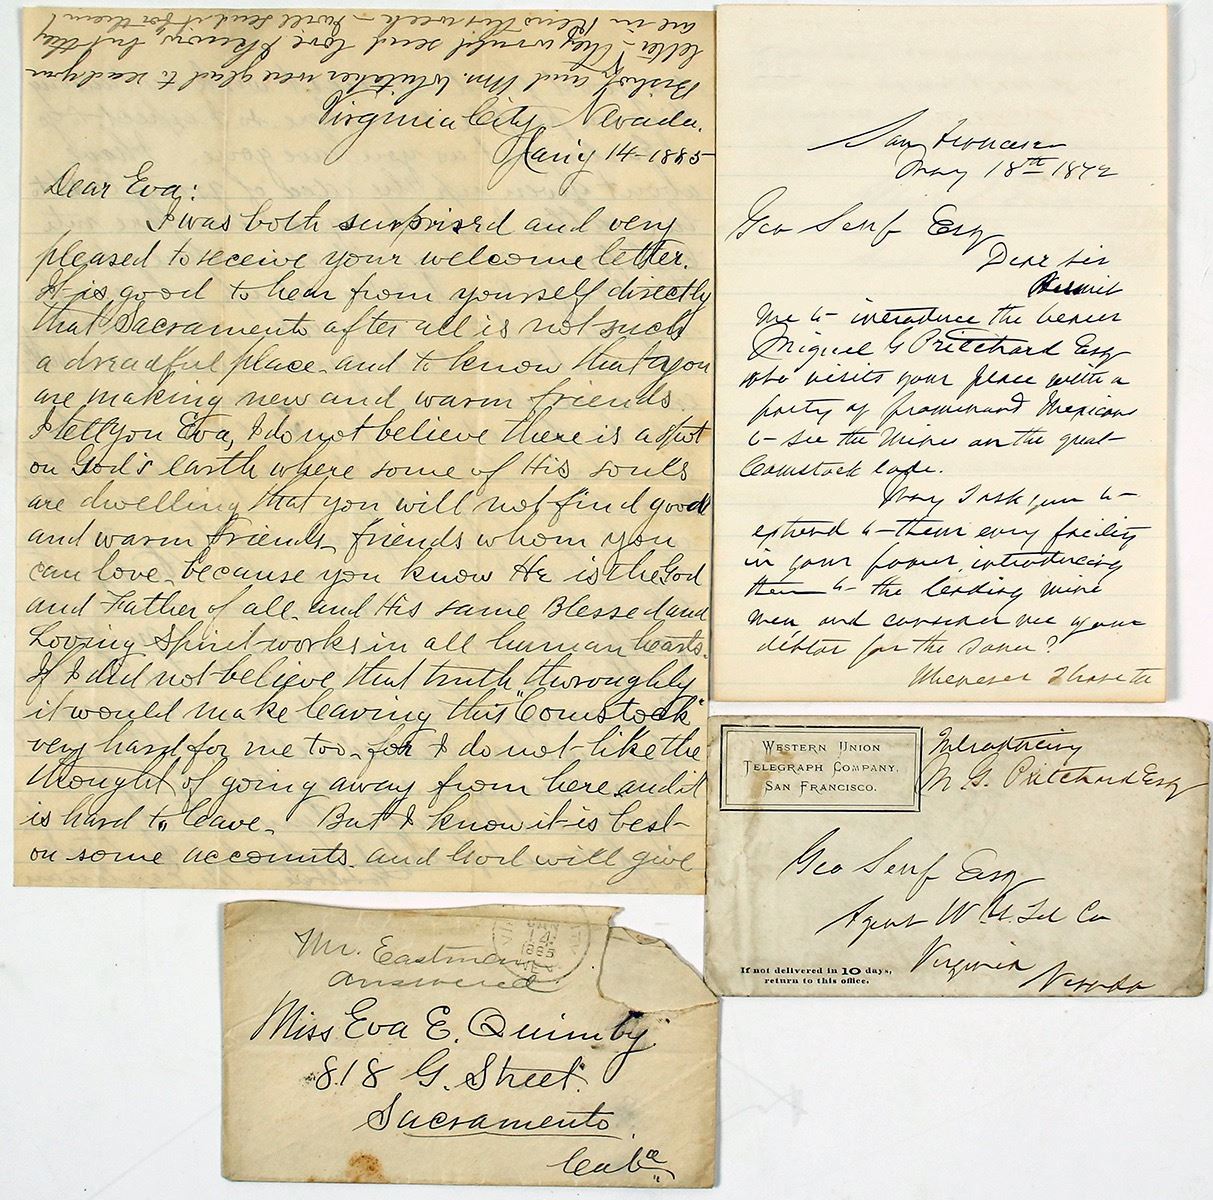 Bishop and Mrs. Whitaker were glad to read your
letter. They would send love, I know, but they
are in Reno this week - I will send it for them!
Virginia City, Nevada.
Jan'y 14-1885
Dear Eva:
I was both surprised and very
pleased to receive your welcome letter.
It is good to hear from yourself directly
that Sacramento after all is not such
a dreadful place and to know that you
are making new and warm friends.
I tell you Eva, I do not believe there is a spot
on God's earth where some of His souls
are dwelling that you will not find good
and warm friends - friends whom you
can love - because you know He is the God
and Father of all and His same Blessed and
Loving Spirit works in all human hearts.
If I did not believe that truth thoroughly
it would make leaving this "Comstock"
very hard for me too - for I do not like the
thought of going away from here and it
is hard to leave. But I know it is best
on some accounts and God will give
San Francisco
May 18th 1872
Geo Senf Esq
Dear sir
Permit
me to introduce the bearer
Miguel G Pritchard Esq
who visits your place with a
party of prominent Mexicans
to see the Mines on the great
Comstock lode.
May I ask you to
extend to them every facility
in your power, introducing
them to the leading mine
men and consider me your
debtor for the same?
Western Union
Telegraph Company,
San Francisco.
Introducing
M. G. Pritchard Esq
Geo Senf Esq
Agent W. U. Tel Co
Virginia
Nevada
If not delivered in 10 days,
return to this office.
JAN
14
1885
Mr. Eastman
answered
Miss Eva E. Quimby.
818 G. Street.
Sacramento.
Cala